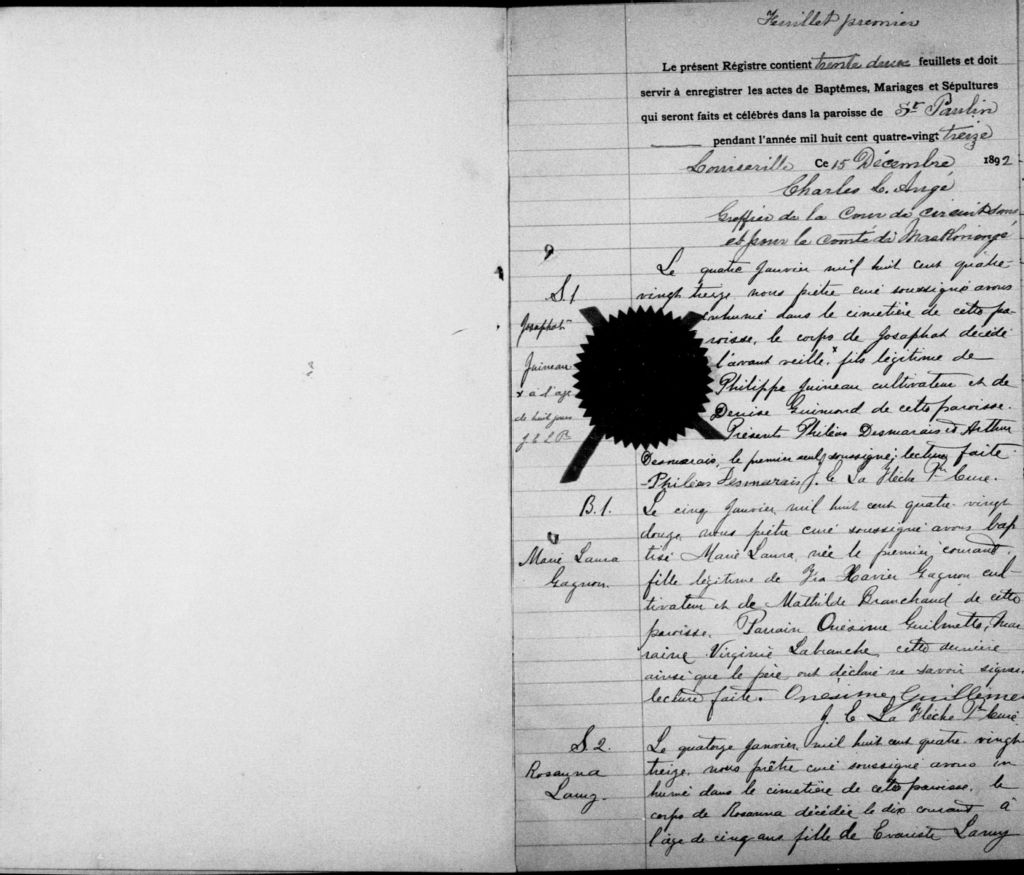 Feuillet premier
Le présent Régistre contient trente deux feuillets et doit
servir à enregistrer les actes de Baptêmes, Mariages et Sépultures
qui seront faits et célébrés dans la paroisse de St Paulin
pendant l'année mil huit cent quatre-vingt treize
Louiseville Ce 15 Décembre 1892
Charles L. Augé
Greffier de la Cour de circuit dans
et pour le comté de Maskinongé
S. 1
Josaphat
Juineau
x a l'age
de huit jours
Le quatre Janvier mil huit cent quatre-
vingt treize nous prêtre curé soussigné avons
inhumé dans le cimetière de cette pa-
roisse, le corps de Josaphat décédé
l'avant veille, x fils légitime de
Philippe Juineau cultivateur et de
Denise Guimond de cette paroisse.
Présents Philéas Desmarais et Arthur
Desmarais, le premier seul soussigné; lecture faite
Philéas Desmarais J. E. La Flèche Ptre Curé.
B. 1.
Marie Laura
Gagnon.
Le cinq Janvier mil huit cent quatre-vingt
douze, nous prêtre curé soussigné avons bap
tisé Marie Laura, née le premier courant,
fille légitime de Fra Xavier Gagnon cul-
tivateur et de Mathilde Branchaud de cette
paroisse. Parrain Onésime Guilmette, Mar
raine Virginie Labranche cette dernière
ainsi que le père ont déclaré ne savoir signer
lecture faite. Onesime Guillemette
J. E. La Flèche Ptre Curé
S. 2.
Rosanna
Lamy.
Le quatorze Janvier, mil huit cent quatre-vingt
treize, nous prêtre curé soussigné avons in
humé dans le cimetière de cette paroisse, le
corps de Rosanna décédée le dix courant à
l'âge de cinq ans fille de Evariste Lamy